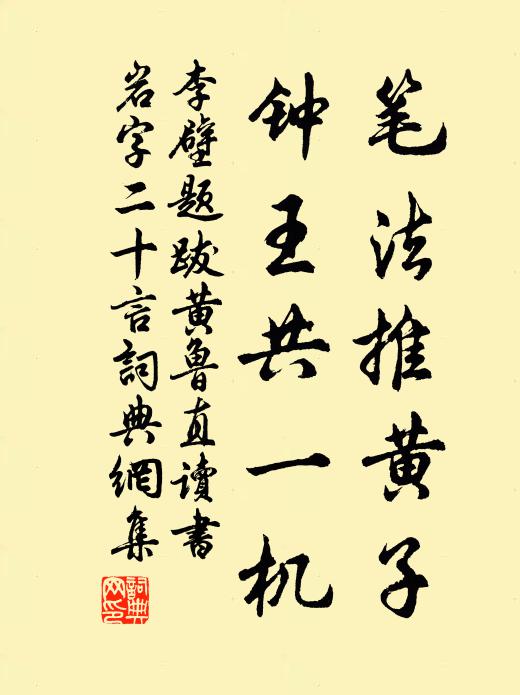 笔法推黄子
钟王共一机
李壁题跋黄鲁直读书
岩字二十言詞典網集
詞典
网印